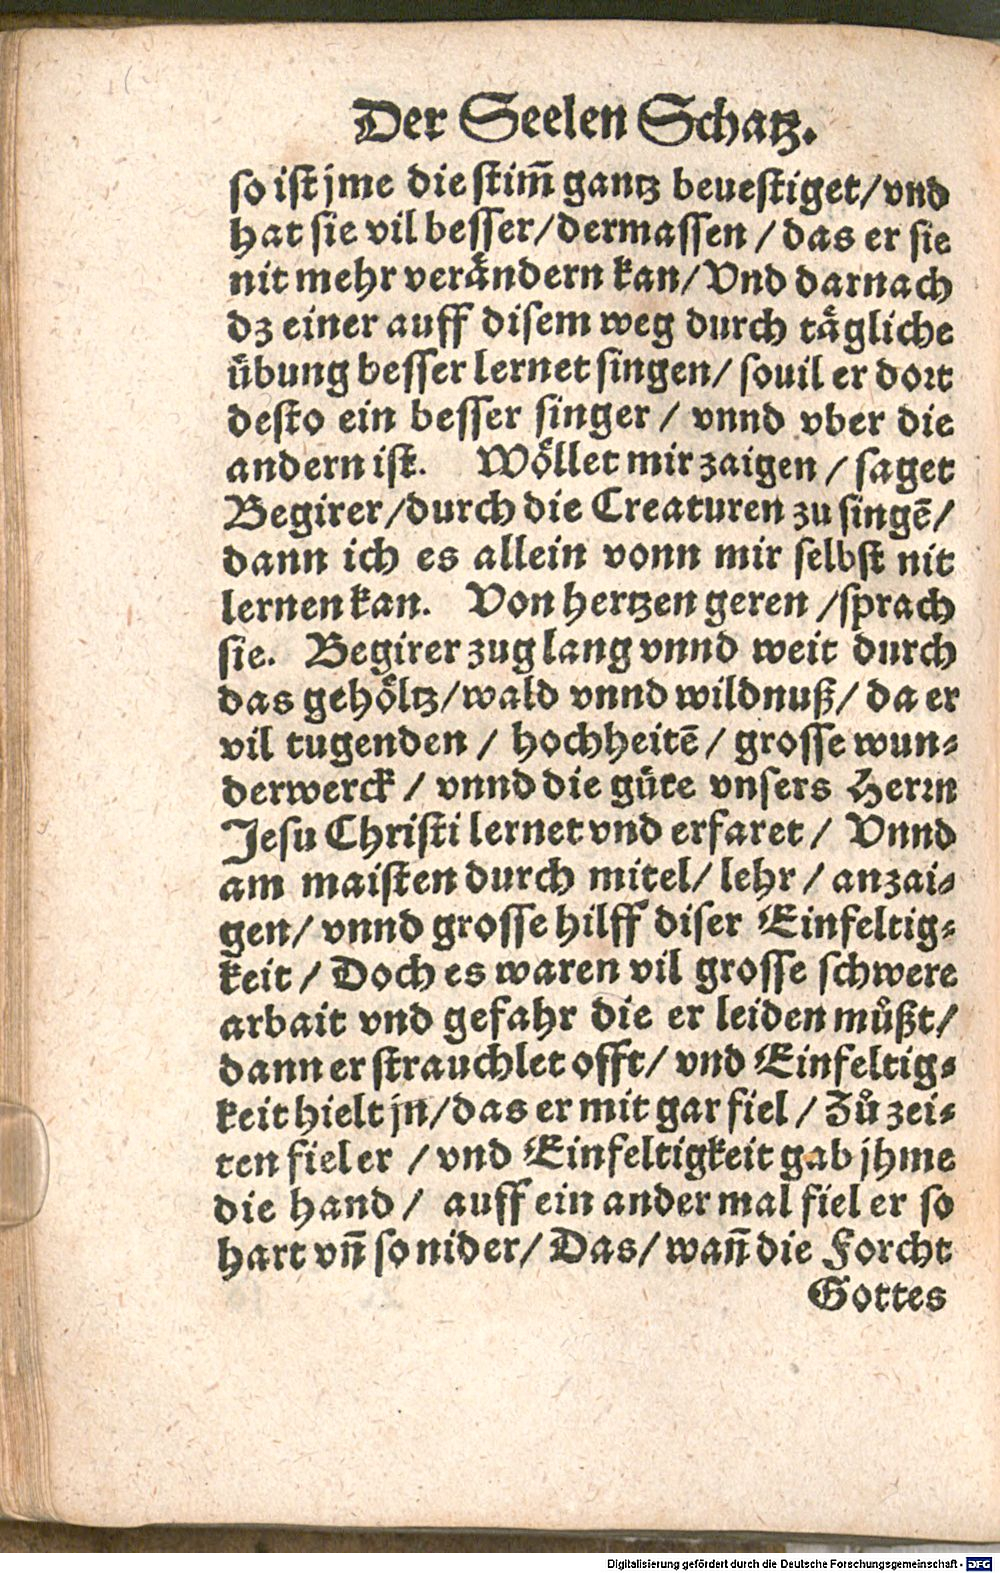 Der Seelen Schatz.
so ist jme die stim̃ gantz beuestiget/vnd
hat sie vil besser/dermassen / das er sie
nit mehr verändern kan/Vnd darnach
dz einer auff disem weg durch tägliche
übung besser lernet singen/ souil er dort
desto ein besser singer / vnnd vber die
andern ist. Wöllet mir zaigen / saget
Begirer/durch die Creaturen zu singē/
dann ich es allein vonn mir selbst nit
lernen kan. Von hertzen geren /sprach
sie. Begirer zug lang vnnd weit durch
das gehöltz/wald vnnd wildnuß/ da er
vil tugenden / hochheitē / grosse wun⸗
derwerck / vnnd die güte vnsers Herrn
Jesu Christi lernet vnd erfaret / Vnnd
am maisten durch mitel/ lehr / anzai⸗
gen/ vnnd grosse hilff diser Einfeltig⸗
keit / Doch es waren vil grosse schwere
arbait vnd gefahr die er leiden můßt/
dann er strauchlet offt/ vnd Einfeltig⸗
keit hielt jn/das er mit gar fiel / Zů zei⸗
ten fiel er / vnd Einfeltigkeit gab jhme
die hand / auff ein ander mal fiel er so
hart vñ so nider/ Das/ wañ die Forcht
Gottes
Digitalisierung gefördert durch die Deutsche Forschungsgemeinschaft - DFG